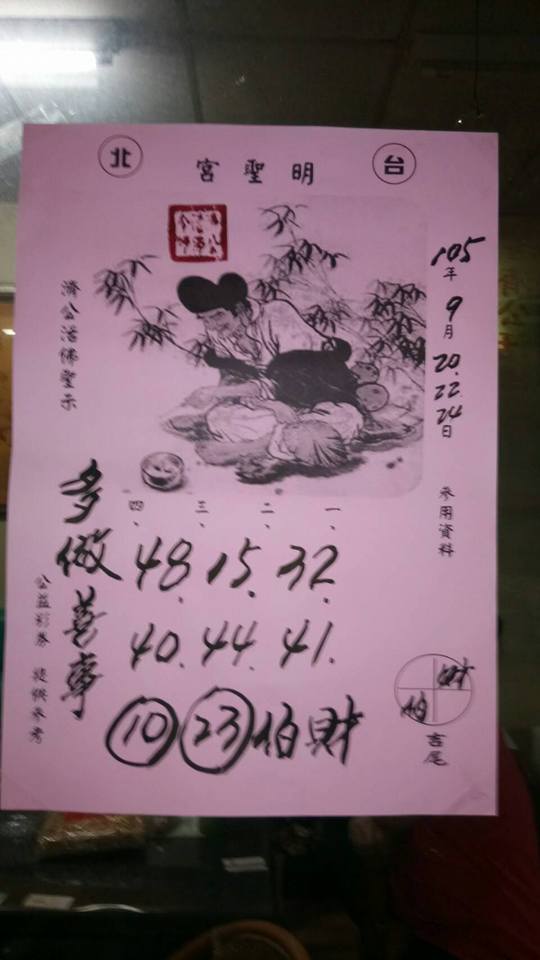 台北
明聖宮
105年9月20.22.24日
參用資料
濟公活佛聖示
一、二、三、四、
32. 15. 48
41. 44. 40.
財伯 23 10
多做善事
公益彩券 提供參考
財
伯
吉尾